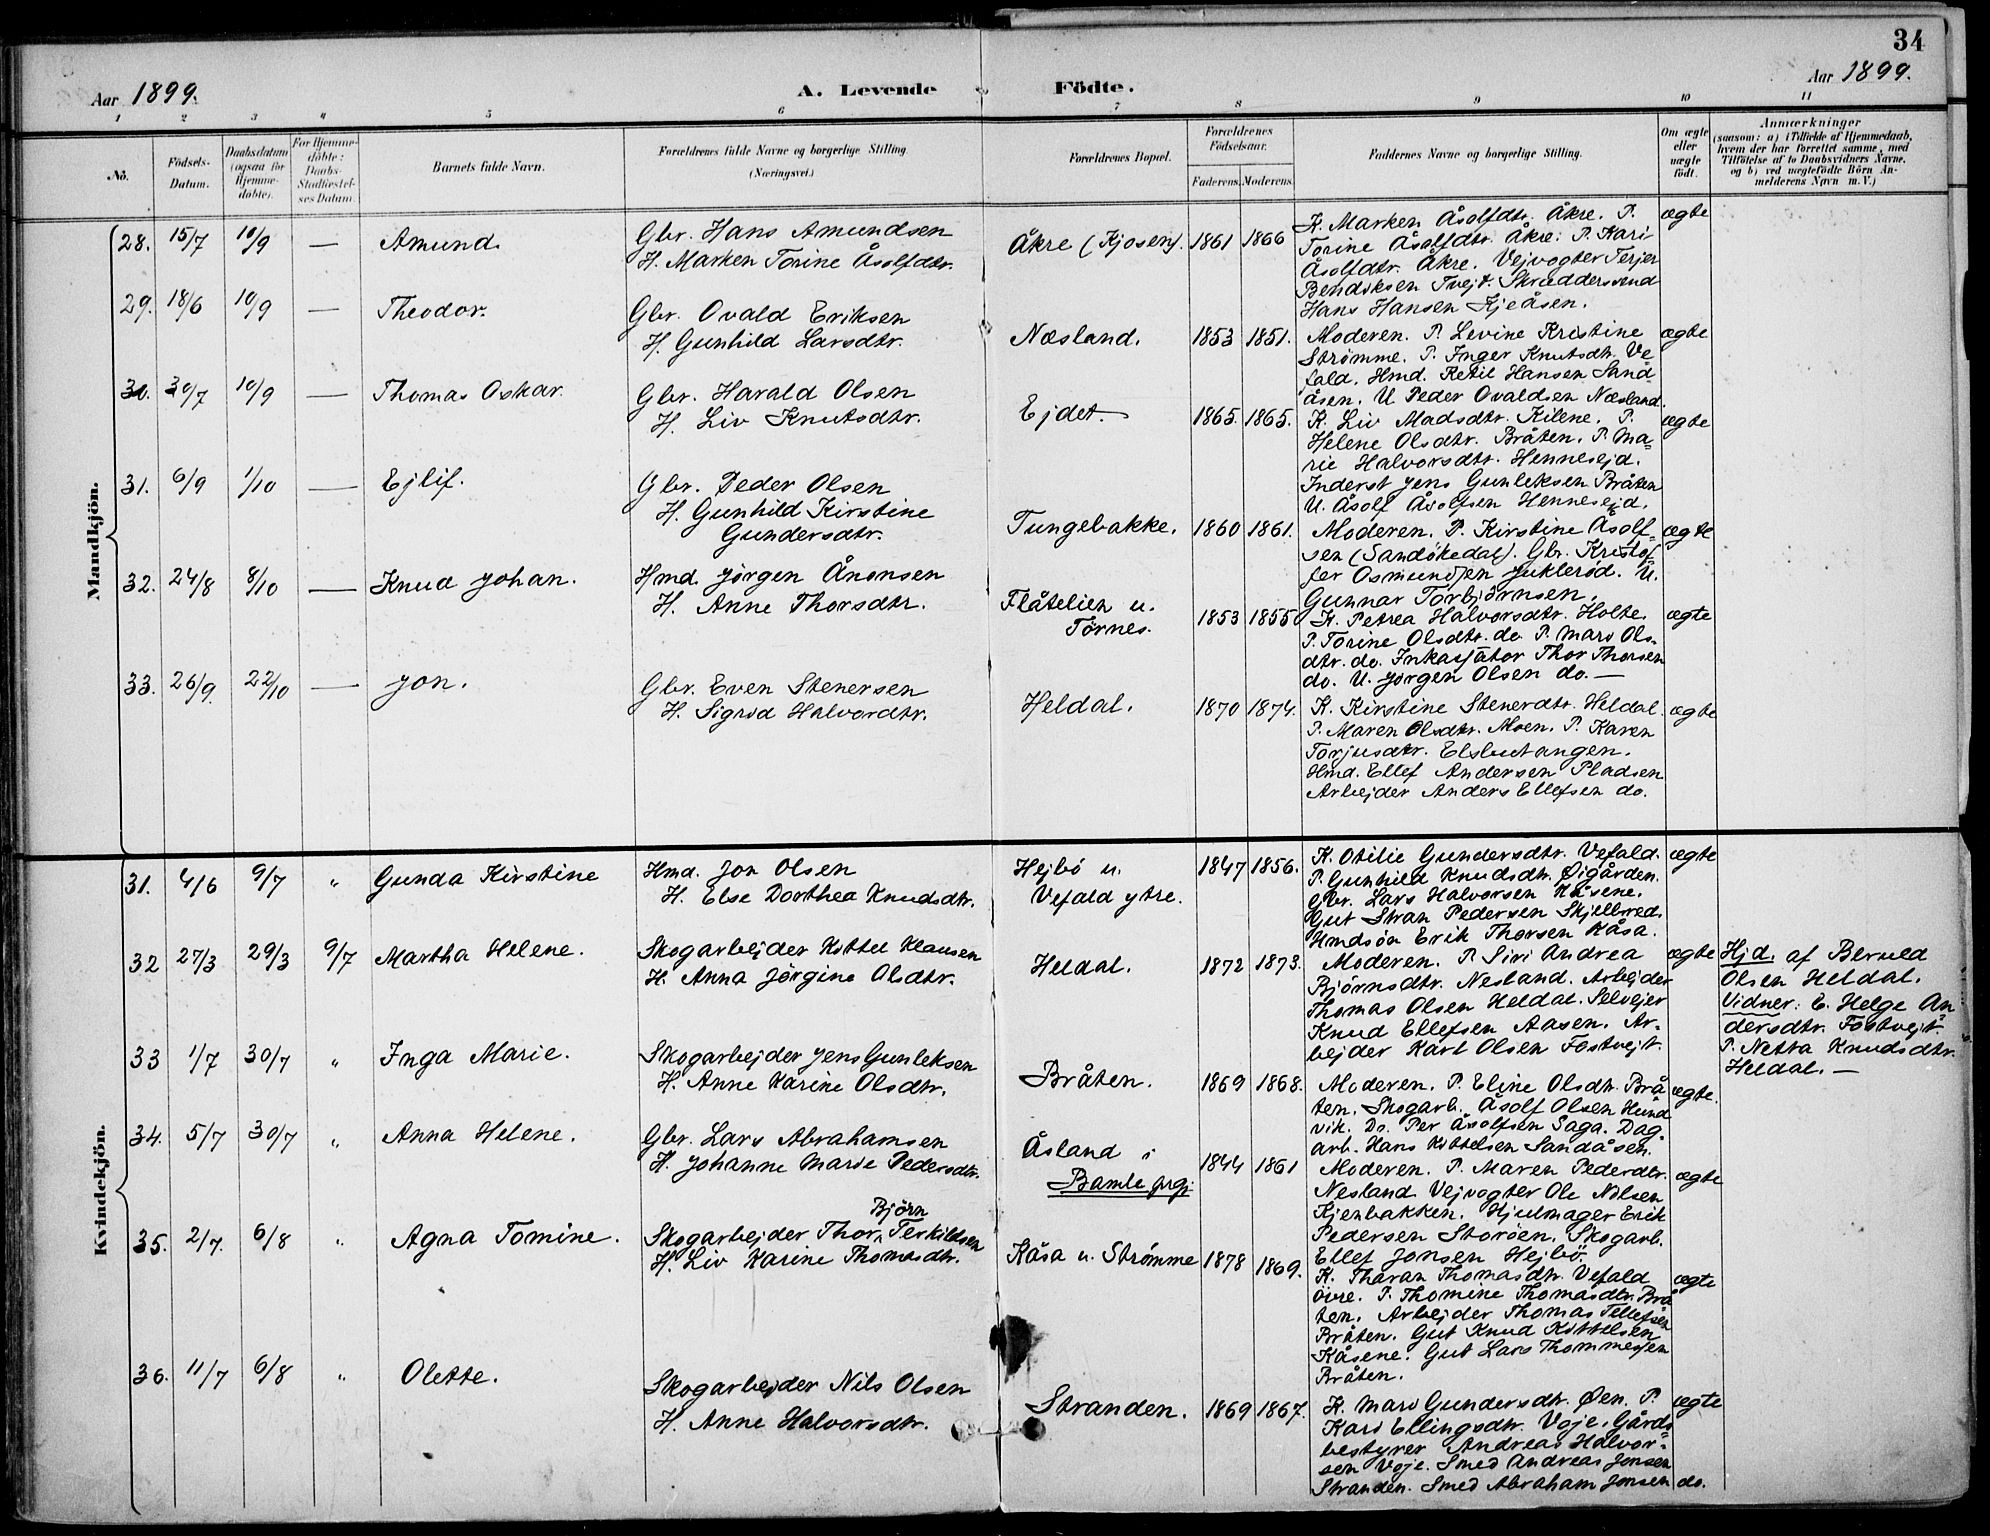 34
Aar 1899.
A. Levende Födte.
Aar 1899.
1 2 3 4 5 6 7 8 9 10 11
No.
Födsels-
Datum.
Daabsdatum
(ogsaa for
Hjemme-
döbte).
For Hjemme-
döbte:
Daabs-
Stadfæstel-
ses Datum.
Barnets fulde Navn.
Forældrenes fulde Navne og borgerlige Stilling.
(Næringsvei.)
Forældrenes Bopæl.
Forældrenes
Födselsaar.
Faderens. Moderens.
Faddernes Navne og borgerlige Stilling.
Om ægte
eller
uægte
födt.
Anmærkninger
(saasom: a) i Tilfælde af Hjemmedaab,
hvem der har forrettet samme, med
Tilföielse af to Daabsvidners Navne,
og b) ved uægtefödte Börn An-
melderens Navn m. V.)
Mandkjön.
28. 15/7 10/9 — Amund.
Gbr. Hans Amundsen
H. Marken Torine Åsolfdtr.
Åkre (Kjosen). 1861 1866
K. Marken Åsolfdtr. Åkre. P.
Torine Åsolfdtr. Åkre. P. Kari
Åsolfdtr. Åkre. Vejvogter Terjer
Bendiksen Tvejt. Skræddersvend
Hans Hansen Kjeåsen.
ægte
29. 18/6 10/9 — Theodor.
Gbr. Ovald Eriksen
H. Gunhild Larsdtr.
Næsland. 1853 1851.
Moderen. P. Levine Kristine
Strømme. P. Inger Knutsdtr. Ve
fald. Hmd. Ketil Hansen Sand
åsen. U. Peder Ovaldsen Næsland.
ægte
30. 30/7 10/9 — Thomas Oskar.
Gbr. Harald Olsen
H. Liv Knutsdtr.
Ejdet. 1865. 1865.
K. Liv Madsdtr. Kilene. P.
Helene Olsdtr. Bråten. P. Ma=
rie Halvorsdtr. Hennesejd.
Inderst Jens Gunleksen Bråten
U. Åsolf Åsolfsen Hennesejd.
ægte
31. 6/9 1/10 — Ejlif.
Gbr. Peder Olsen
H. Gunhild Kirstine
Gundersdtr.
Tungebakke. 1860 1861.
Moderen. P. Kirstine Åsolf=
sen (Sandökedal). Gbr. Kristof
fer Osmundsen Juklerød. U.
Gunnar Torbjörnsen.
ægte
32. 24/8 8/10 — Knud Johan.
Hmd. Jørgen Ånonsen
H. Anne Thorsdtr.
Flåtelien u.
Törnes. 1853 1855
K. Petrea Halvorsdtr. Holte.
P. Torine Olsdtr. do P. Mari Ols-
dtr. do. Inkasjator Thor Thorsen
do. U. Jørgen Olsen do. —
ægte
33. 26/9. 22/10 — Jon.
Gbr. Even Stenersen
H. Sigrid Halvordtr.
Heldal. 1870 1874.
K. Kirstine Stenerdtr. Heldal.
P. Maren Olsdtr. Moen. P. Karen
Torjusdtr. Elsbutangen.
Hmd. Ellef Andersen Pladsen
Arbejder Anders Ellefsen do.
ægte
Kvindekjön.
31. 4/6 9/7 " Gunda Kirstine
Hmd. Jon Olsen
H. Else Dorthea Knudsdtr.
Hejbö u.
Vefald ytre. 1847 1856.
K. Otilie Gundersdtr. Vefald.
P. Gunhild Knudsdtr. Øigården.
Gbr. Lars Halvorsen Kåsene.
Gut Stran Pedersen Skjelbred.
Hmdsön Erik Thorsen Kåsa.
ægte
32 27/3 29/3 9/7 Martha Helene.
Skogarbejder Kittel Klausen
H. Anna Jörgine Olsdtr.
Heldal. 1872 1873.
Moderen. P. Siri Andrea
Björnsdtr. Nesland. Arbejder
Thomas Olsen Heldal. Selvejer
Knud Ellefsen Aasen. Ar-
bejder Karl Olsen Fostvejt.
ægte
Hjd. af Berueld
Olsen Heldal.
Vidner: E. Helge An
dersdtr. Fostvejt.
P. Netta Knudsdtr.
Heldal. —
33 1/7 30/7 " Inga Marie.
Skogarbejder Jens Gunleksen
H. Anne Karine Olsdtr.
Bråten. 1869 1868.
Moderen. P. Eline Olsdtr. Brå
ten. Skogarb. Åsolf Olsen Hund
vik. Do. Per Åsolfsen Saga. Dag-
arb. Hans Kittelsen Sandåsen.
ægte.
34. 5/7 30/7 " Anna Helene.
Gbr. Lars Abrahamsen
H. Johanne Marie Pedersdtr.
Åsland i
Bamle prgj. 1844 1861
Moderen. P. Maren Pederdtr.
Nesland. Vejvogter Ole Nilsen
Kjenbakken. Hjulmager Erik
Pedersen Storöen. Skogarb.
Ellef Jonsen Hejbö.
ægte
35. 2/7. 6/8 " Agna Tomine.
Björn
Skogarbejder Thor, Terkildsen
H. Liv Karine Thomasdtr.
Kåsa u. Strømme 1878 1869.
K. Tharan Thomasdtr. Vefald
övre. P. Thomine Thomasdtr. Brå
ten. Arbejder Thomas Tellefsen
Bråten. Gut Knud Kittelsen
Kåsene. Gut Lars Thommesen
Bråten.
ægte
36. 11/7 6/8 " Olette.
Skogarbejder Nils Olsen
H. Anne Halvorsdtr.
Stranden. 1869 1867.
K. Mari Gundersdtr. Øen. P.
Kari Ellingsdtr. Voje. Gårds
bestyrer Andreas Halvor-
sen Voje. Smed Andreas Jonsen
Stranden. Smed Abraham Jonsen do.
ægte